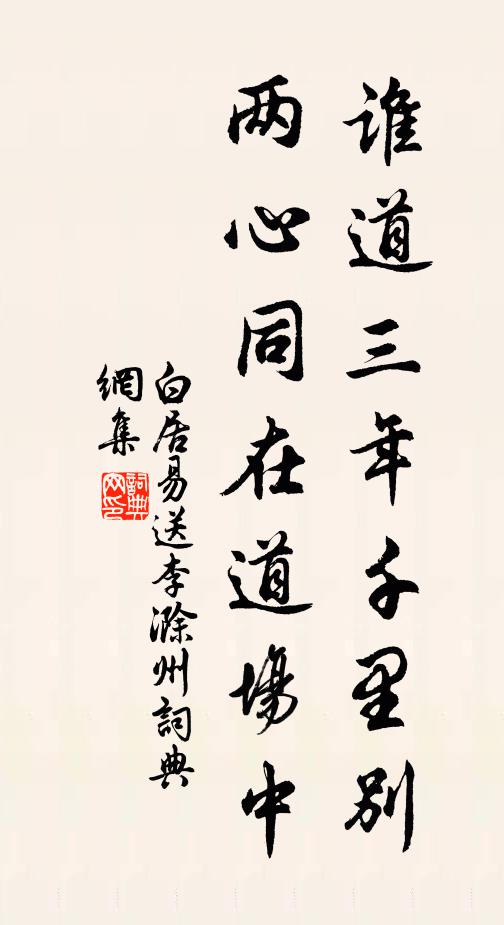 誰道三年千里別
两心同在道場中
白居易送李滁州詞典
網集
詞典
网印